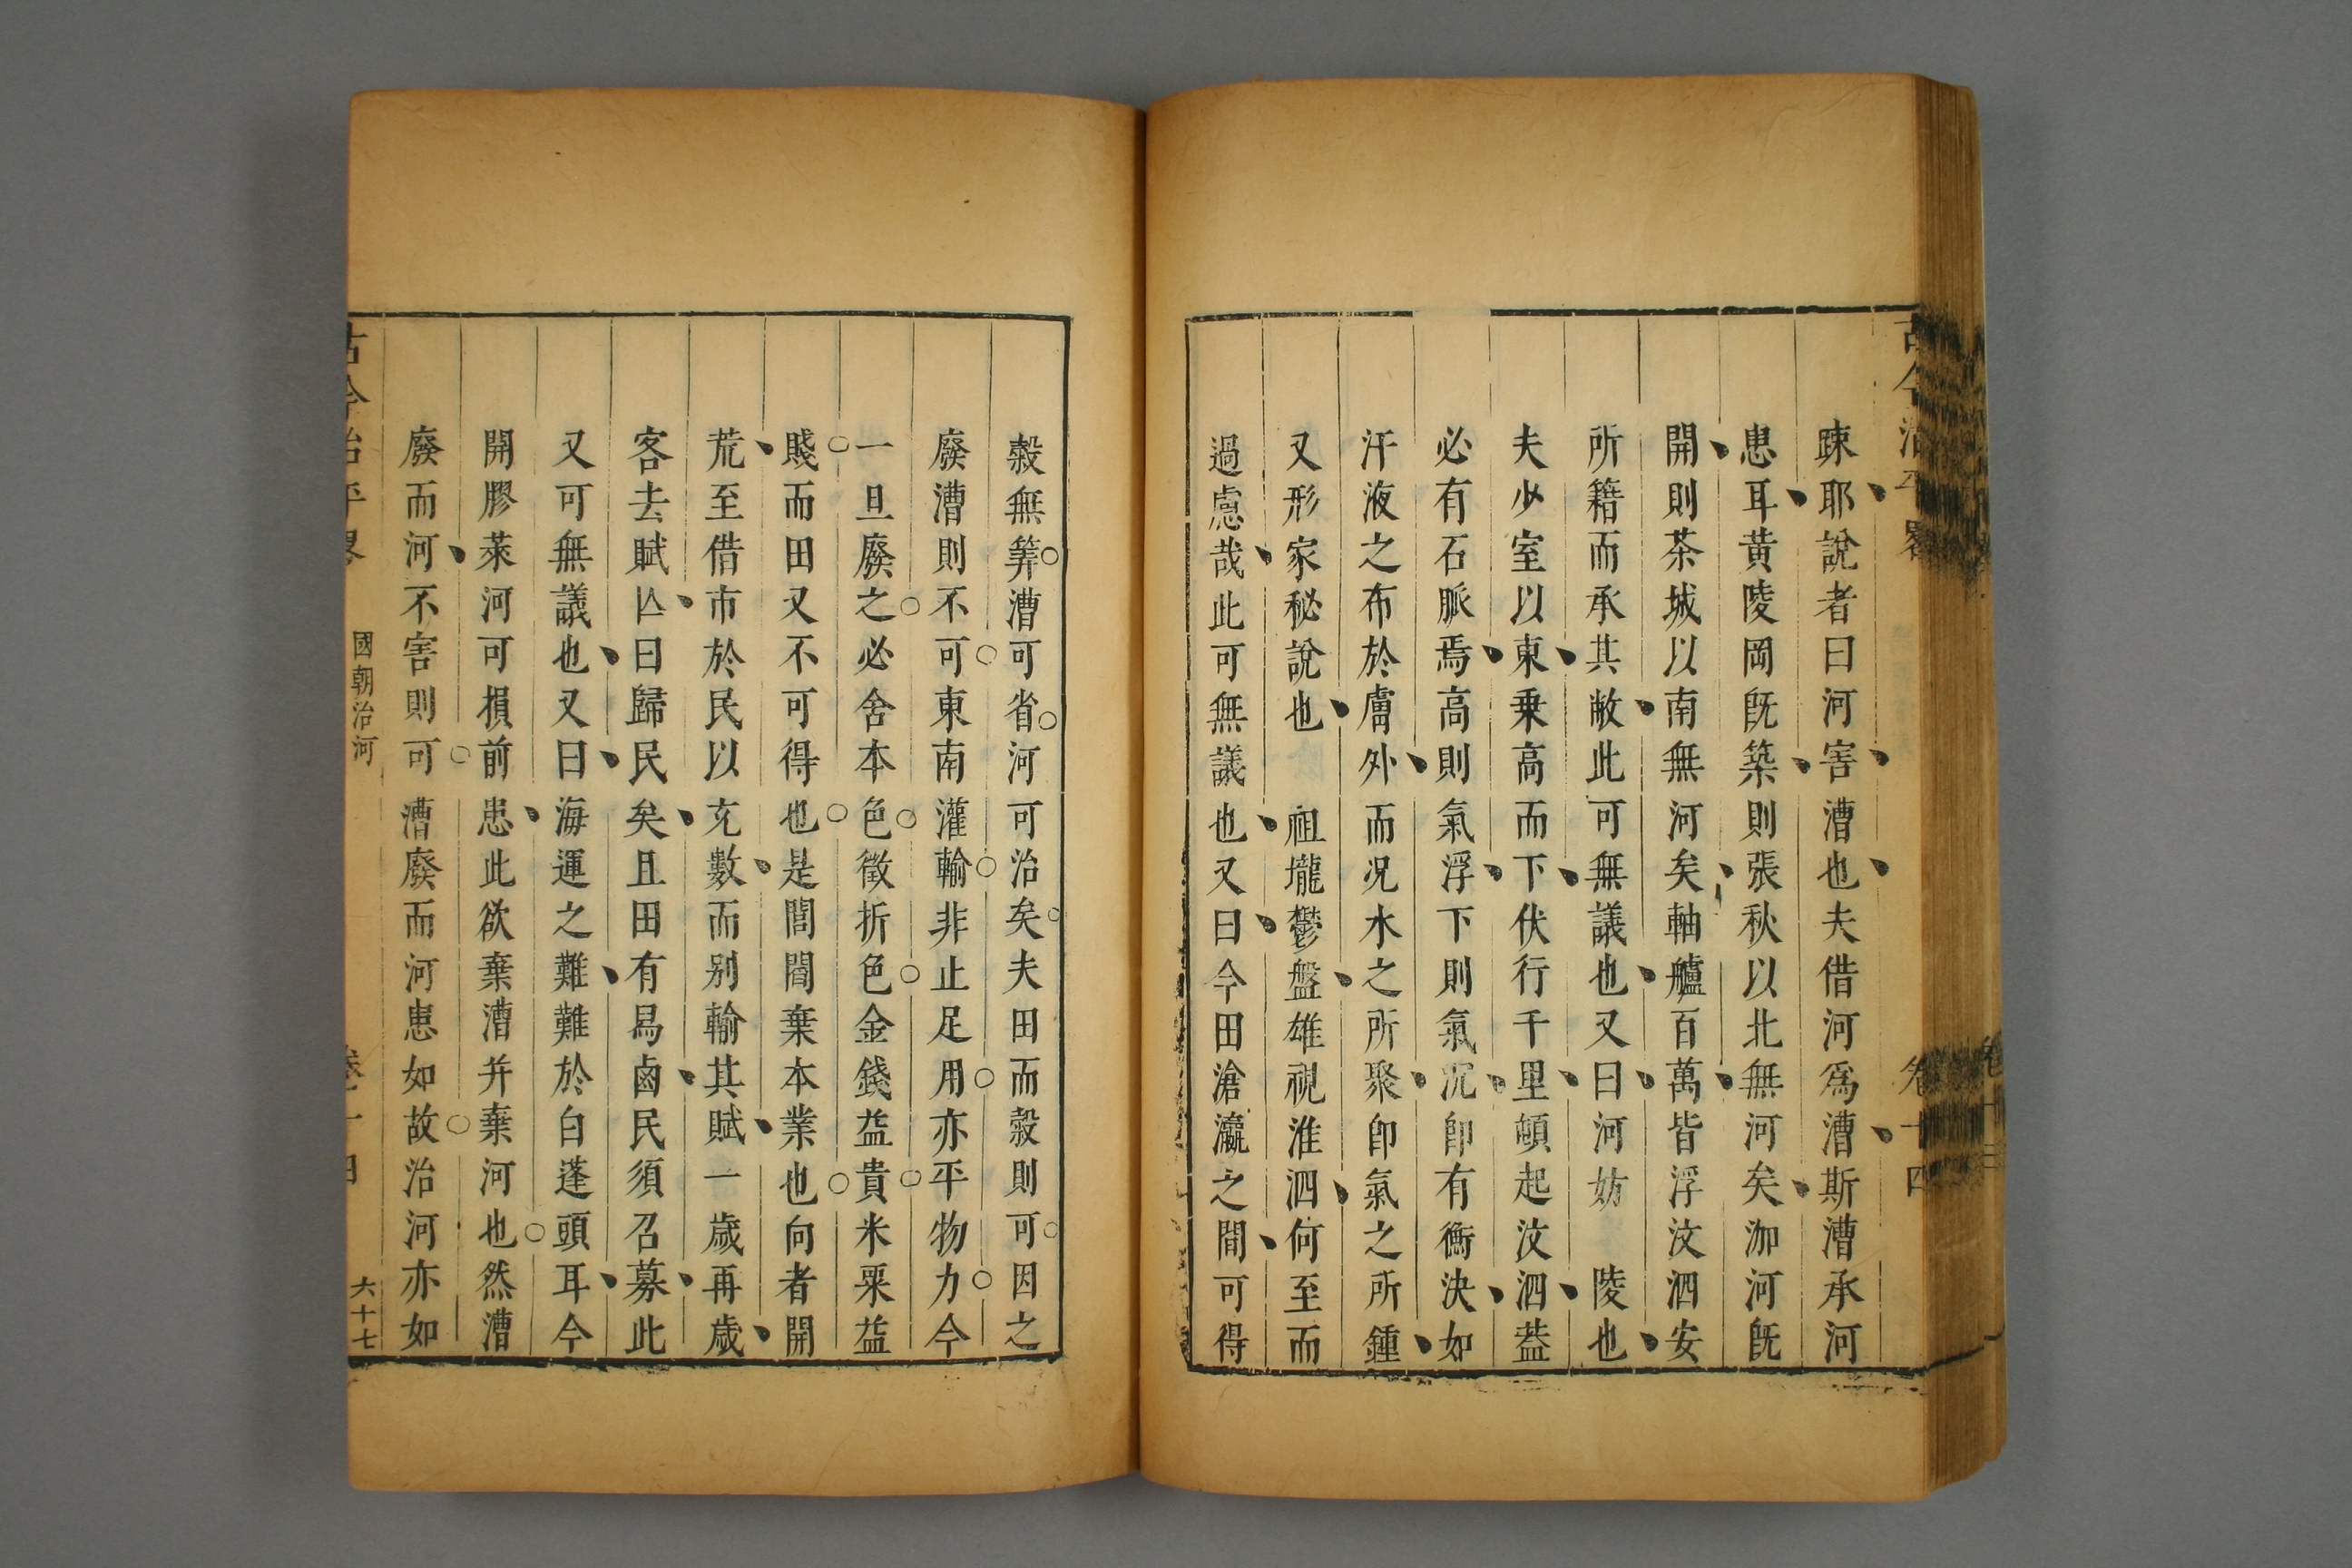 古今治平畧
卷十四
疎耶說者曰河害漕也夫借河爲漕斯漕承河
患耳黃陵岡既築則張秋以北無河矣泇河既
開則茶城以南無河矣軸艫百萬皆浮汶泗安
所籍而承其敝此可無議也又曰河妨 陵也
夫少室以東乗高而下伏行千里頓起汶泗葢
必有石脈焉高則氣浮下則氣沉卽有衝決如
汗液之布於膚外而况水之所聚卽氣之所鍾
又形家秘說也 祖壠鬱盤雄視淮泗何至而
過慮哉此可無議也又曰今田滄瀛之間可得
穀無筭漕可省河可治矣夫田而穀則可因之
廢漕則不可東南灌輸非止足用亦平物力今
一旦廢之必舍本色徵折色金錢益貴米粟益
賤而田又不可得也是閭閻棄本業也向者開
荒至借市於民以充數而别輸其賦一歲再歲
客去賦亾曰歸民矣且田有舄鹵民須召募此
又可無議也又曰海運之難難於白蓬頭耳今
開膠萊河可損前患此欲棄漕并棄河也然漕
廢而河不害則可漕廢而河患如故治河亦如
古今治平畧
國朝治河
卷十四
六十七